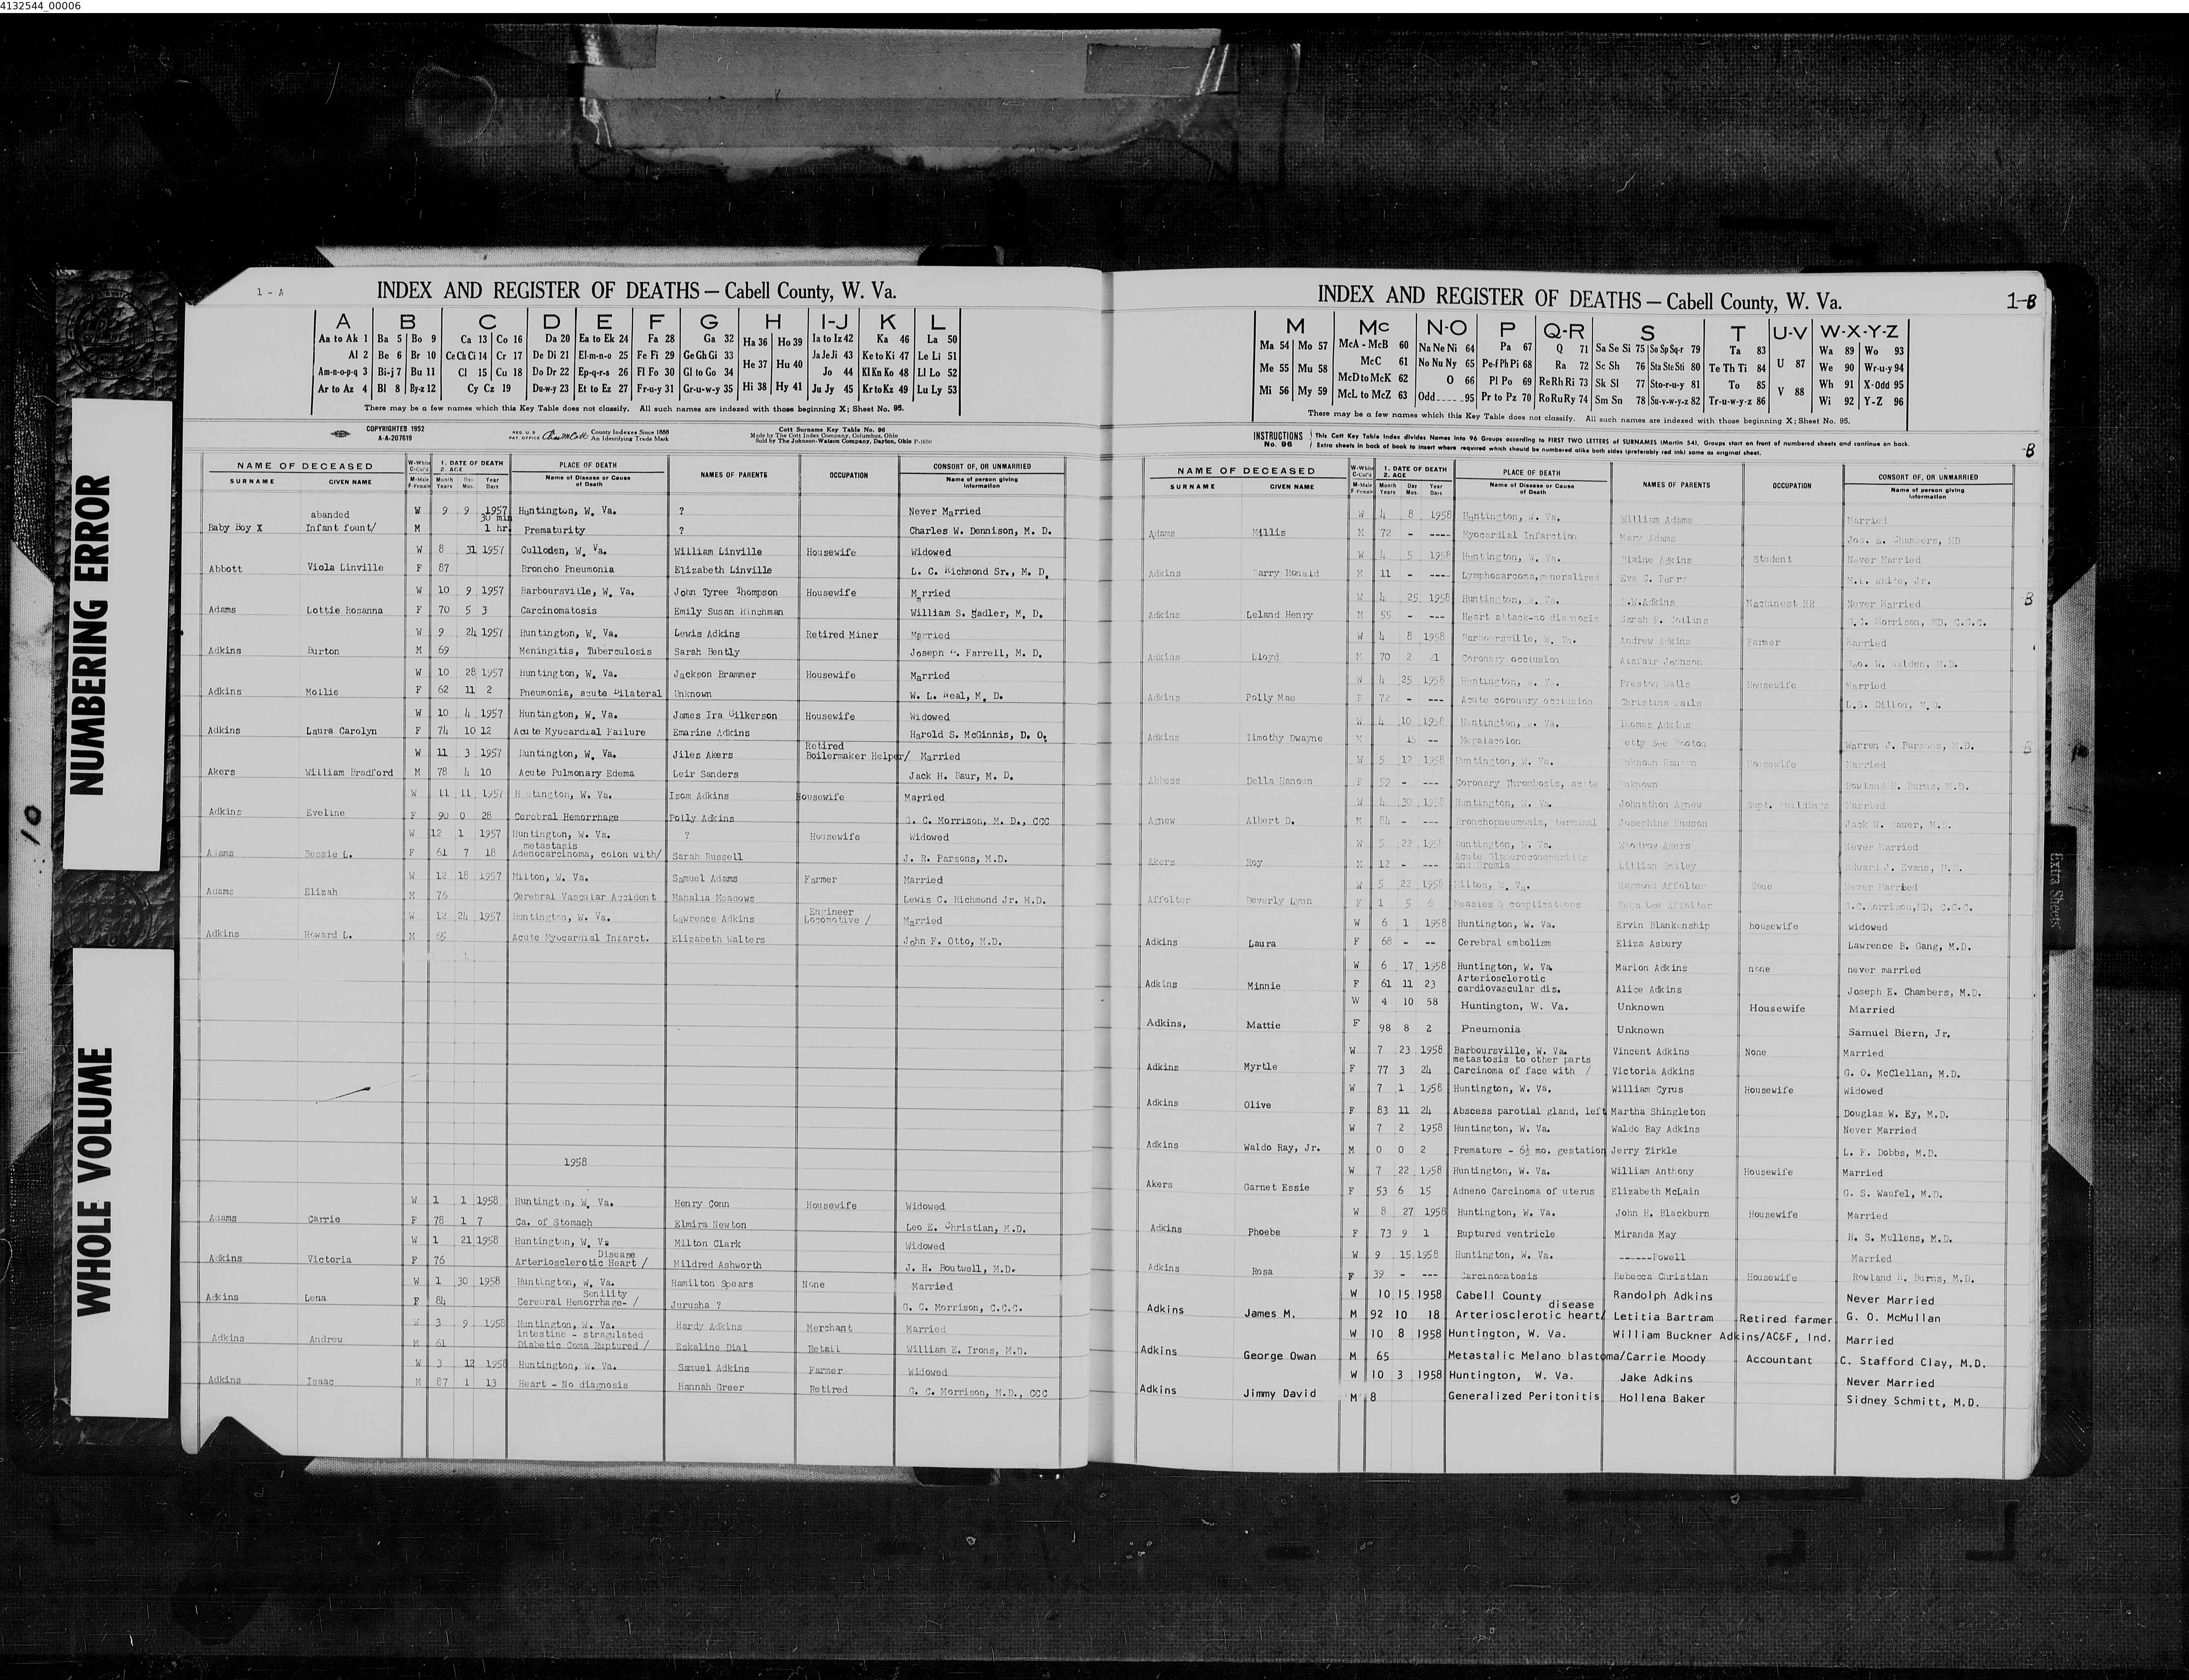 4132544_00006
NUMBERING ERROR
WHOLE VOLUME
10
1 - A
INDEX AND REGISTER OF DEATHS — Cabell County, W. Va.
A B C D E F G H I-J K L
Aa to Ak 1 Ba 5 Bo 9 Ca 13 Co 16 Da 20 Ea to Ek 24 Fa 28 Ga 32 Ha 36 Ho 39 Ia to Iz 42 Ka 46 La 50
Al 2 Be 6 Br 10 Ce Ch Ci 14 Cr 17 De Di 21 El-m-n-o 25 Fe Fi 29 Ge Gh Gi 33 He 37 Hu 40 Ja Je Ji 43 Ke to Ki 47 Le Li 51
Am-n-o-p-q 3 Bi-j 7 Bu 11 Cl 15 Cu 18 Do Dr 22 Ep-q-r-s 26 Fl Fo 30 Gl to Go 34 Hi 38 Hy 41 Jo 44 Kl Kn Ko 48 Ll Lo 52
Ar to Az 4 Bl 8 By-z 12 Cy Cz 19 Du-w-y 23 Et to Ez 27 Fr-u-y 31 Gr-u-w-y 35 Ju Jy 45 Kr to Kz 49 Lu Ly 53
There may be a few names which this Key Table does not classify. All such names are indexed with those beginning X; Sheet No. 95.
COPYRIGHTED 1952
A-A-207619
REG. U.S. PAT. OFFICE County Indexes Since 1888
An Identifying Trade Mark
Cott Surname Key Table No. 96
Made by The Cott Index Company, Columbus, Ohio
Sold by The Johnson-Watson Company, Dayton, Ohio P-1650
NAME OF DECEASED
SURNAME GIVEN NAME
W-White C-Col'd M-Male F-Female
1. DATE OF DEATH 2. AGE
Month Day Year
Years Mos. Days
PLACE OF DEATH
Name of Disease or Cause of Death
NAMES OF PARENTS
OCCUPATION
CONSORT OF, OR UNMARRIED
Name of person giving Information
abanded W 9 9 1957 Huntington, W. Va. ? Never Married
30 min
Baby Boy X Infant fount/ M 1 hr. Prematurity ? Charles W. Dennison, M. D.
W 8 31 1957 Culloden, W. Va. William Linville Housewife Widowed
Abbott Viola Linville F 87 Broncho Pneumonia Elizabeth Linville L. C. Richmond Sr., M. D.
W 10 9 1957 Barboursville, W. Va. John Tyree Thompson Housewife Married
Adams Lottie Rosanna F 70 5 3 Carcinomatosis Emily Susan Hinchman William S. Sadler, M. D.
W 9 24 1957 Huntington, W. Va. Lewis Adkins Retired Miner Married
Adkins Burton M 69 Meningitis, Tuberculosis Sarah Bently Joseph B. Farrell, M. D.
W 10 28 1957 Huntington, W. Va. Jackson Brammer Housewife Married
Adkins Mollie F 62 11 2 Pneumonia, acute Bilateral Unknown W. L. Neal, M. D.
W 10 4 1957 Huntington, W. Va. James Ira Gilkerson Housewife Widowed
Adkins Laura Carolyn F 74 10 12 Acute Myocardial Failure Emarine Adkins Harold S. McGinnis, D. O.
W 11 3 1957 Huntington, W. Va. Jiles Akers Retired Boilermaker Helper/ Married
Akers William Bradford M 78 4 10 Acute Pulmonary Edema Leir Sanders Jack H. Baur, M. D.
W 11 11 1957 Huntington, W. Va. Isom Adkins Housewife Married
Adkins Eveline F 90 0 28 Cerebral Hemorrhage Polly Adkins G. C. Morrison, M. D., CCC
W 12 1 1957 Huntington, W. Va. ? Housewife Widowed
metastasis
Adams Bessie L. F 61 7 18 Adenocarcinoma, colon with/ Sarah Russell J. R. Parsons, M.D.
W 12 18 1957 Milton, W. Va. Samuel Adams Farmer Married
Adams Elizah M 76 Cerebral Vascular Accident Mahalia Meadows Lewis C. Richmond Jr. M.D.
W 12 24 1957 Huntington, W. Va. Lawrence Adkins Engineer Locomotive / Married
Adkins Howard L. M 65 Acute Myocardial Infarct. Elizabeth Walters John F. Otto, M.D.
1958
W 1 1 1958 Huntington, W. Va. Henry Conn Housewife Widowed
Adams Carrie F 78 1 7 Ca. of Stomach Elmira Newton Leo E. Christian, M.D.
W 1 21 1958 Huntington, W. Va Milton Clark Widowed
Disease
Adkins Victoria F 76 Arteriosclerotic Heart / Mildred Ashworth J. H. Boutwell, M.D.
W 1 30 1958 Huntington, W. Va. Hamilton Spears None Married
Senility
Adkins Lena F 84 Cerebral Hemorrhage- / Jurusha ? G. C. Morrison, C.C.C.
W 3 9 1958 Huntington, W. Va. Hardy Adkins Merchant Married
intestine - stragulated
Adkins Andrew M 61 Diabetic Coma Ruptured / Eskaline Dial Retail William E. Irons, M.D.
W 3 12 1958 Huntington, W. Va. Samuel Adkins Farmer Widowed
Adkins Isaac M 87 1 13 Heart - No diagnosis Hannah Greer Retired G. C. Morrison, M.D., CCC
INDEX AND REGISTER OF DEATHS — Cabell County, W. Va.
1-B
M Mc N-O P Q-R S T U-V W-X-Y-Z
Ma 54 Mo 57 McA - McB 60 Na Ne Ni 64 Pa 67 Q 71 Sa Se Si 75 So Sp Sq-r 79 Ta 83 U 87 Wa 89 Wo 93
Me 55 Mu 58 McC 61 No Nu Ny 65 Pe-f Ph Pi 68 Ra 72 Sc Sh 76 Sta Ste Sti 80 Te Th Ti 84 V 88 We 90 Wr-u-y 94
Mi 56 My 59 McD to McK 62 O 66 Pl Po 69 Re Rh Ri 73 Sk Sl 77 Sto-r-u-y 81 To 85 Wh 91 X-Odd 95
McL to McZ 63 Odd 95 Pr to Pz 70 Ro Ru Ry 74 Sm Sn 78 Su-v-w-y-z 82 Tr-u-w-y-z 86 Wi 92 Y-Z 96
There may be a few names which this Key Table does not classify. All such names are indexed with those beginning X; Sheet No. 95.
INSTRUCTIONS No. 96
This Cott Key Table Index divides Names into 96 Groups according to FIRST TWO LETTERS of SURNAMES (Martin 54), Groups start on front of numbered sheets and continue on back.
Extra sheets in back of book to insert where required which should be numbered alike both sides (preferably red ink) same as original sheet.
-B
NAME OF DECEASED
SURNAME GIVEN NAME
W-White C-Col'd M-Male F-Female
1. DATE OF DEATH 2. AGE
Month Day Year
Years Mos. Days
PLACE OF DEATH
Name of Disease or Cause of Death
NAMES OF PARENTS
OCCUPATION
CONSORT OF, OR UNMARRIED
Name of person giving Information
W 4 8 1958 Huntington, W. Va. William Adams Married
Adams Millis M 72 - ---- Myocardial Infarction Mary Adams Jos. E. Chambers, MD
W 4 5 1958 Huntington, W. Va. Blaine Adkins Student Never Married
Adkins Harry Ronald M 11 - ---- Lymphosarcoma,generalized Eva C. Perry M.L. White, Jr.
W 4 25 1958 Huntington, W. Va. B.W.Adkins Machanest RR Never Married
B
Adkins Leland Henry M 55 - --- Heart attack-no diagnosis Sarah F. Collins G.C. Morrison, MD, C.C.C.
W 4 8 1958 Barboursville, W. Va. Andrew Adkins Farmer Married
Adkins Lloyd M 70 2 21 Coronary occlusion Alafair Johnson Geo. W. Walden, M.D.
W 4 25 1958 Huntington, W. Va. Preston Walls Housewife Married
Adkins Polly Mae F 72 - --- Acute coronary occlusion Christina Walls L.S. Dillon, M.D.
W 4 10 1958 Huntington, W. Va. Thomas Adkins
Adkins Timothy Dwayne M 15 -- Megalacolon Betty Sue Wooton Warren J. Parsons, M.D.
B
W 5 12 1958 Huntington, W. Va. Unknown Hanoun Housewife Married
Abbess Della Hanoun F 59 - --- Coronary Thrombosis, acute Unknown Rowland H. Burns, M.D.
W 4 30 1958 Huntington, W. Va. Johnathon Agnew Supt. Buildings Married
Agnew Albert D. M 84 - --- Bronchopneumonia, terminal Josephine Hudson Jack H. Bauer, M.D.
W 5 22 1958 Huntington, W. Va. Woodrow Akers Never Married
Akers Roy M 12 - --- Acute and Uremia Lillian Smiley Edward J. Evans, M.D.
W 5 22 1958 Milton, W. Va. Raymond Affolter None Never Married
Affolter Beverly Lynn F 1 5 6 Measles & complications Reba Lee Affolter G.C.Morrison,MD, C.C.C.
W 6 1 1958 Huntington, W. Va. Ervin Blankenship housewife widowed
Adkins Laura F 68 - -- Cerebral embolism Eliza Asbury Lawrence B. Gang, M.D.
W 6 17 1958 Huntington, W. Va. Marion Adkins none never married
Arteriosclerotic
Adkins Minnie F 61 11 23 cardiovascular dis. Alice Adkins Joseph E. Chambers, M.D.
W 4 10 58 Huntington, W. Va. Unknown Housewife Married
Adkins, Mattie F 98 8 2 Pneumonia Unknown Samuel Biern, Jr.
W 7 23 1958 Barboursville, W. Va. Vincent Adkins None Married
metastosis to other parts
Adkins Myrtle F 77 3 24 Carcinoma of face with / Victoria Adkins G. O. McClellan, M.D.
W 7 1 1958 Huntington, W. Va. William Cyrus Housewife Widowed
Adkins Olive F 83 11 24 Abscess parotial gland, left Martha Shingleton Douglas W. Ey, M.D.
W 7 2 1958 Huntington, W. Va. Waldo Ray Adkins Never Married
Adkins Waldo Ray, Jr. M 0 0 2 Premature - 6½ mo. gestation Jerry Zirkle L. F. Dobbs, M.D.
W 7 22 1958 Huntington, W. Va. William Anthony Housewife Married
Akers Garnet Essie F 53 6 15 Adneno Carcinoma of uterus Elizabeth McLain G. S. Waufel, M.D.
W 8 27 1958 Huntington, W. Va. John H. Blackburn Housewife Married
Adkins Phoebe F 73 9 1 Ruptured ventricle Miranda May H. S. Mullens, M.D.
W 9 15 1958 Huntington, W. Va. ------Powell Married
Adkins Rosa F 39 - --- Carcinomatosis Rebecca Christian Housewife Rowland H. Burns, M.D.
W 10 15 1958 Cabell County Randolph Adkins Never Married
disease
Adkins James M. M 92 10 18 Arteriosclerotic heart/ Letitia Bartram Retired farmer G. O. McMullan
W 10 8 1958 Huntington, W. Va. William Buckner Adkins/AC&F, Ind. Married
Adkins George Owan M 65 Metastalic Melano blastoma/Carrie Moody Accountant C. Stafford Clay, M.D.
W 10 3 1958 Huntington, W. Va. Jake Adkins Never Married
Adkins Jimmy David M 8 Generalized Peritonitis Hollena Baker Sidney Schmitt, M.D.
Extra Sheets